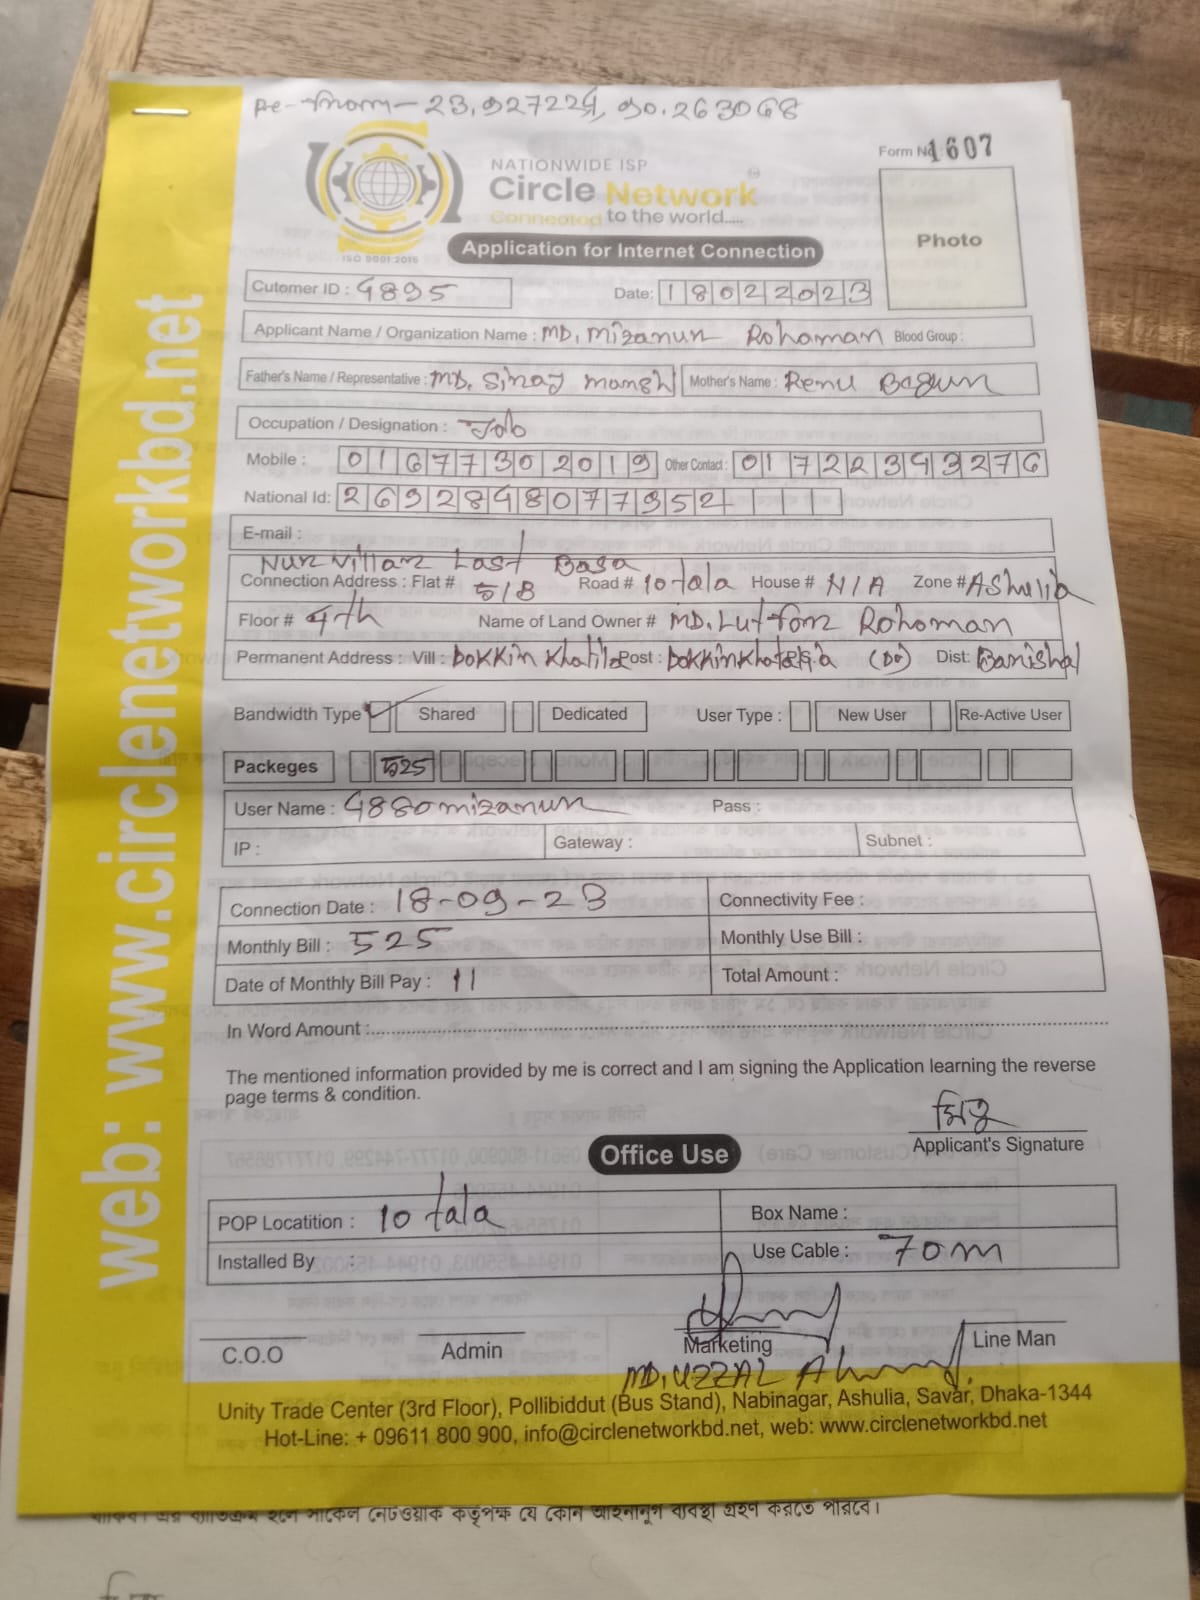 23.927224, 90.263068
NATIONWIDE ISP
Circle Network
Connected to the world.....
ISO 9001:2015
Form No 1607
Photo
Application for Internet Connection
Cutomer ID : 4895
Date: 18022023
Applicant Name / Organization Name : MD. Mizanun Rohaman Blood Group :
Father's Name / Representative : MD. Siraj Munshi Mother's Name : Renu Begum
Occupation / Designation : Job
Mobile : 01677302019 Other Contact : 01722343276
National Id: 2692848077952
E-mail :
Nur Villar Last Basa
Connection Address : Flat # 5/B Road # 10 tala House # N/A Zone # Ashulia
Floor # 4th Name of Land Owner # MD. Lutfor Rohoman
Permanent Address : Vill : Dokkin Khatila Post : Dist: Barishal
Bandwidth Type Shared Dedicated User Type : New User Re-Active User
Packeges 525
User Name : 4880mizanun Pass :
IP : Gateway : Subnet :
Connection Date : 18-09-23 Connectivity Fee :
Monthly Bill : 525 Monthly Use Bill :
Date of Monthly Bill Pay : 11 Total Amount :
In Word Amount :
The mentioned information provided by me is correct and I am signing the Application learning the reverse
page terms & condition.
মিজু
Applicant's Signature
Office Use
POP Locatition : 10 tala Box Name :
Installed By : Use Cable : 70m
C.O.O Admin Marketing Line Man
MD. UZZAL Ahmed
Unity Trade Center (3rd Floor), Pollibiddut (Bus Stand), Nabinagar, Ashulia, Savar, Dhaka-1344
Hot-Line: + 09611 800 900, info@circlenetworkbd.net, web: www.circlenetworkbd.net
web: www.circlenetworkbd.net
থাকিব। এর ব্যতিক্রম হলে সার্কেল নেটওয়ার্ক কর্তৃপক্ষ যে কোন আইনানুগ ব্যবস্থা গ্রহণ করতে পারবে।